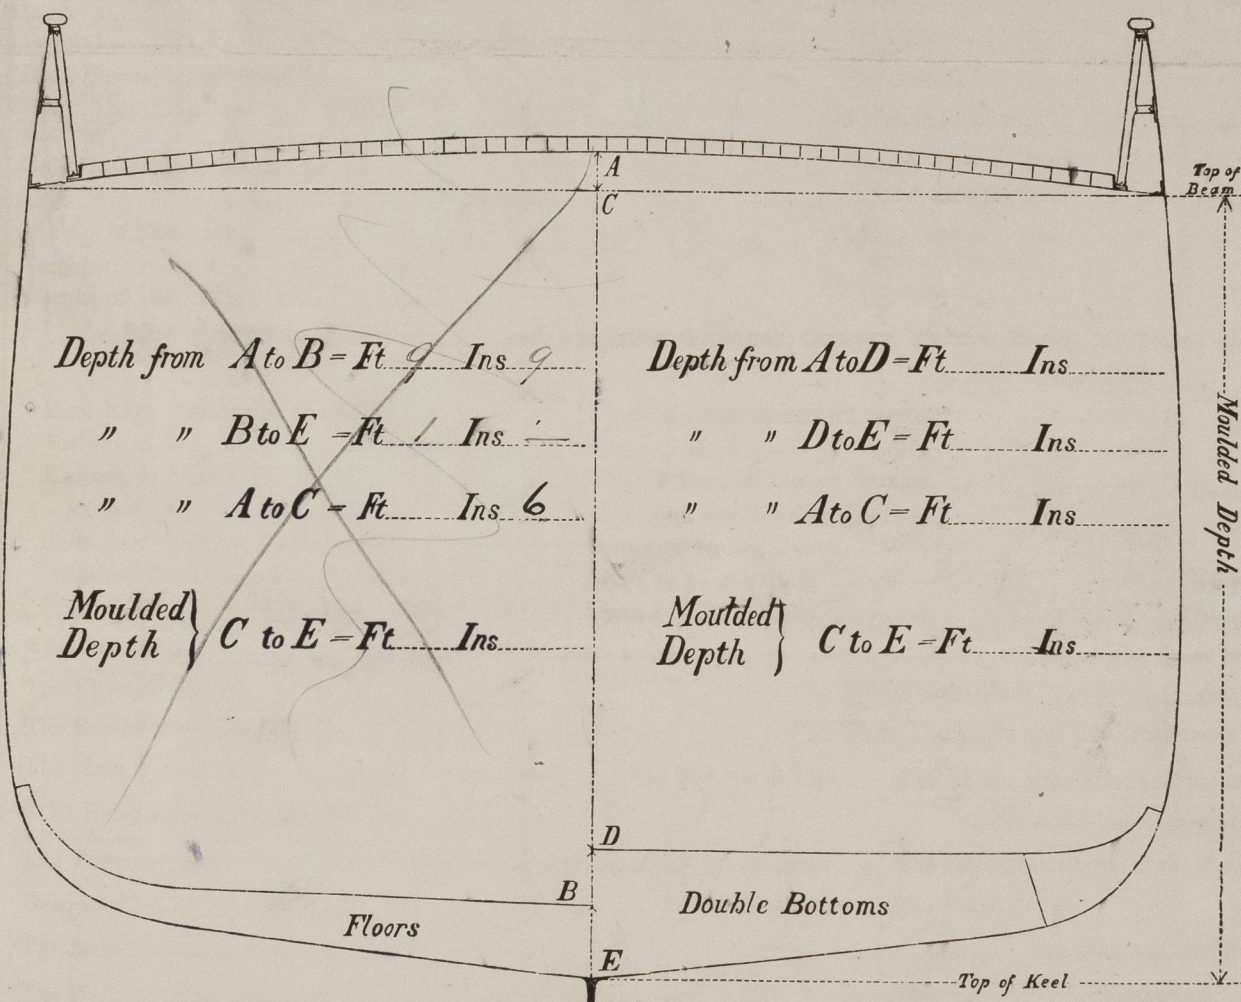 A
Top of
Beam
C
Depth from A to B = Ft 9 Ins 9
" " B to E = Ft 1 Ins -
" " A to C = Ft Ins 6
Moulded
Depth } C to E = Ft Ins
Depth from A to D = Ft Ins
" " D to E = Ft Ins
" " A to C = Ft Ins
Moulded
Depth } C to E = Ft Ins
Moulded Depth
D
B
Floors
Double Bottoms
E
Top of Keel